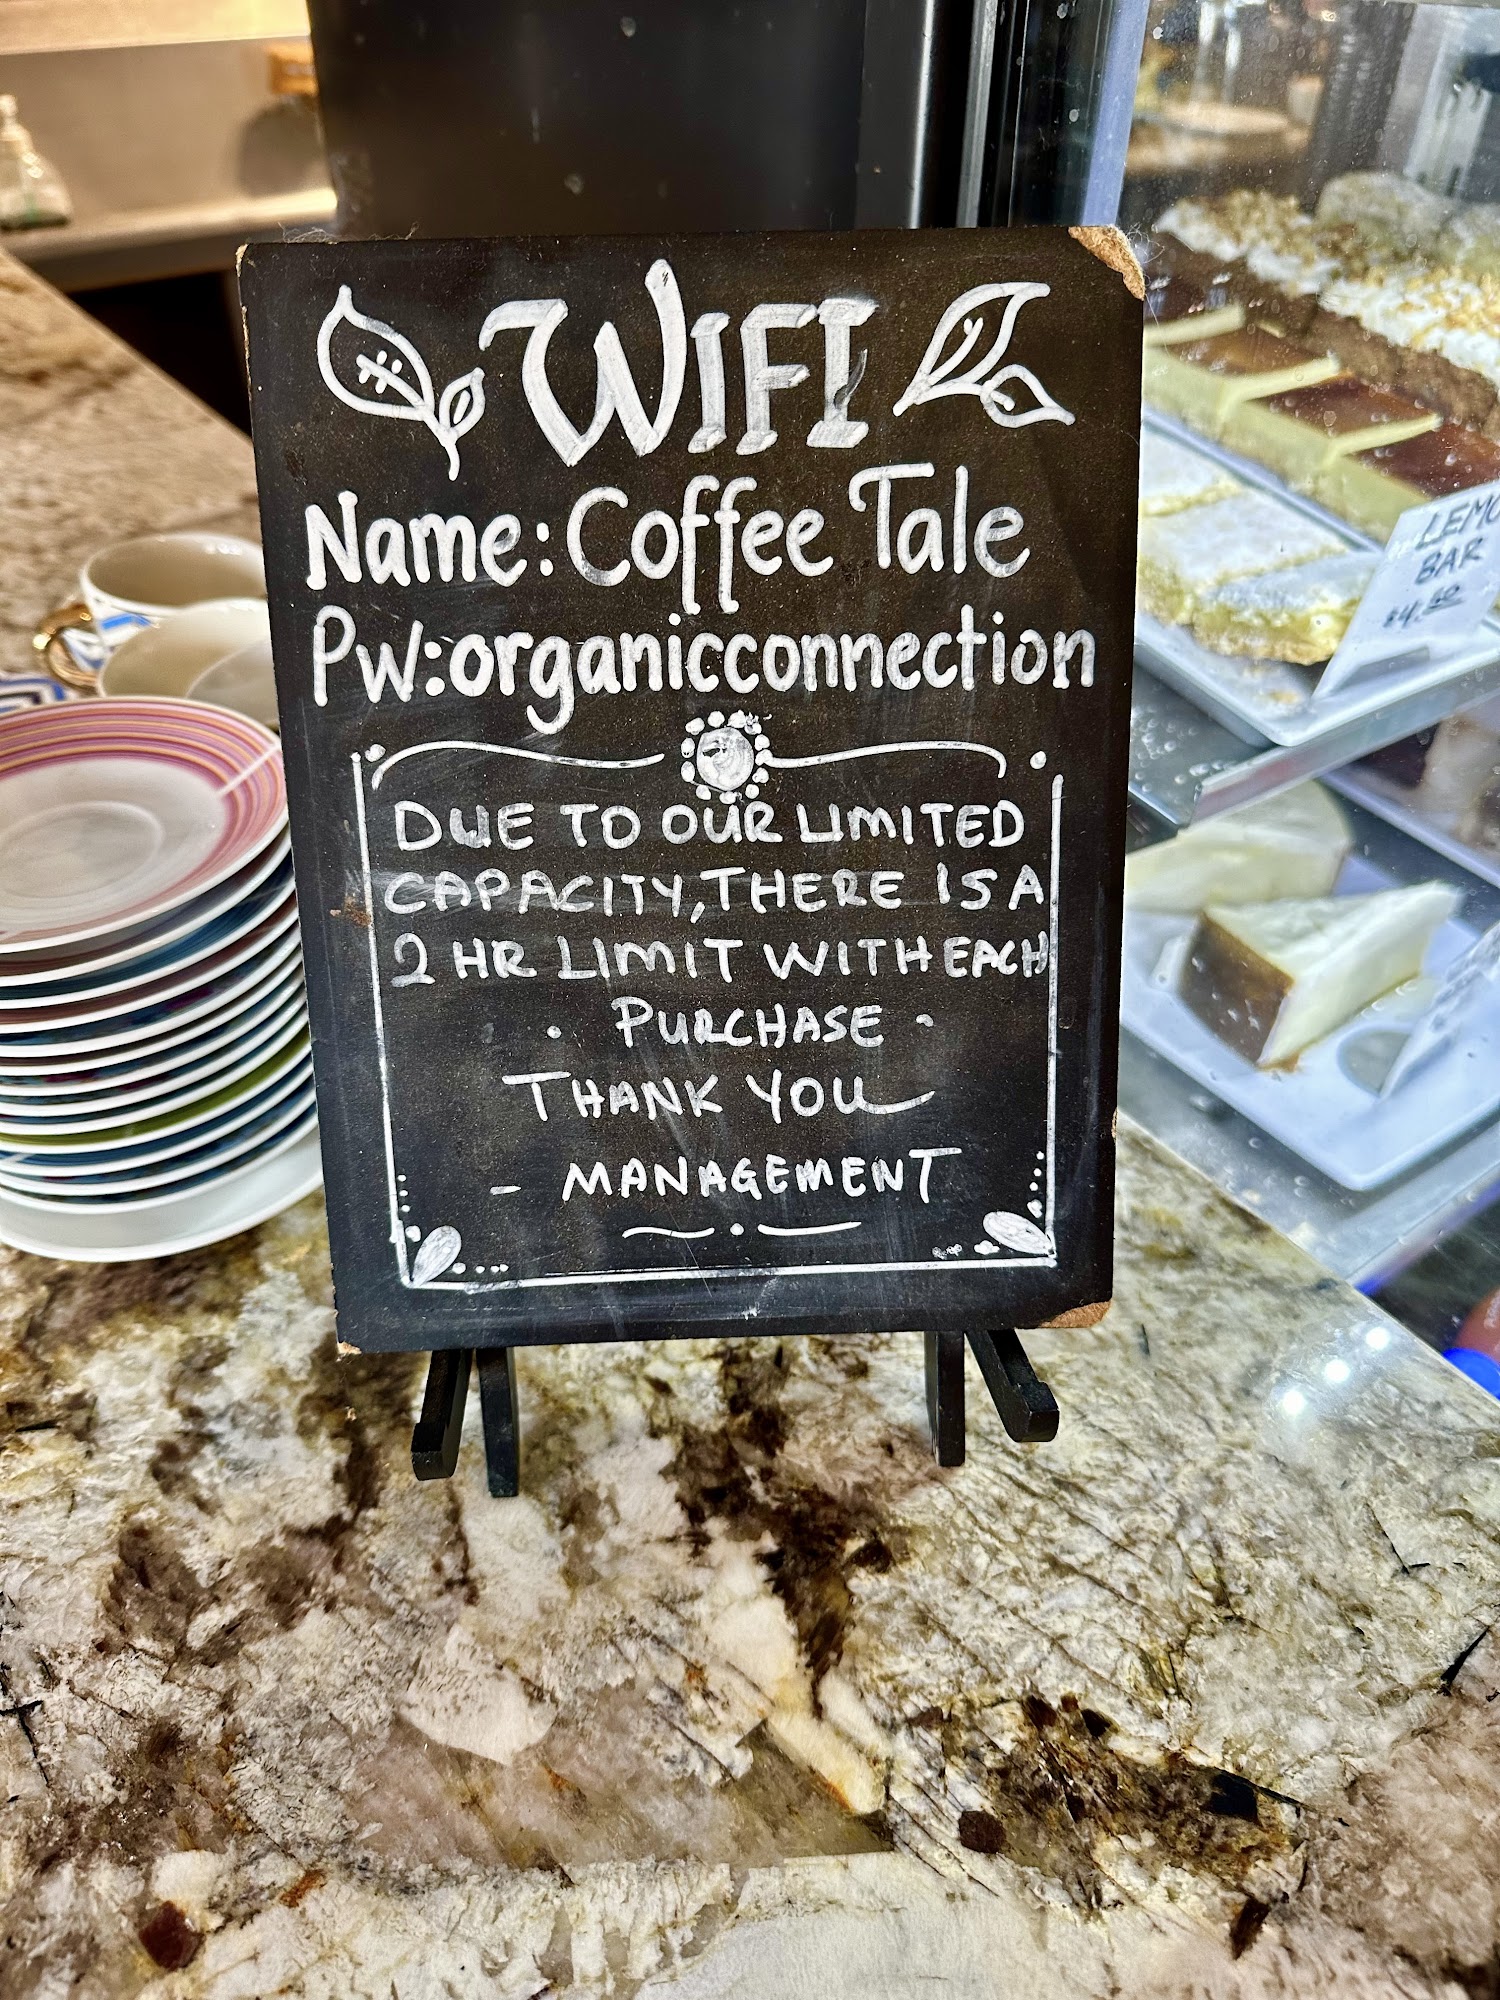 WIFI
Name: Coffee Tale
Pw: organicconnection
DUE TO OUR LIMITED
CAPACITY, THERE IS A
2 HR LIMIT WITH EACH
PURCHASE
THANK YOU
- MANAGEMENT
BAR